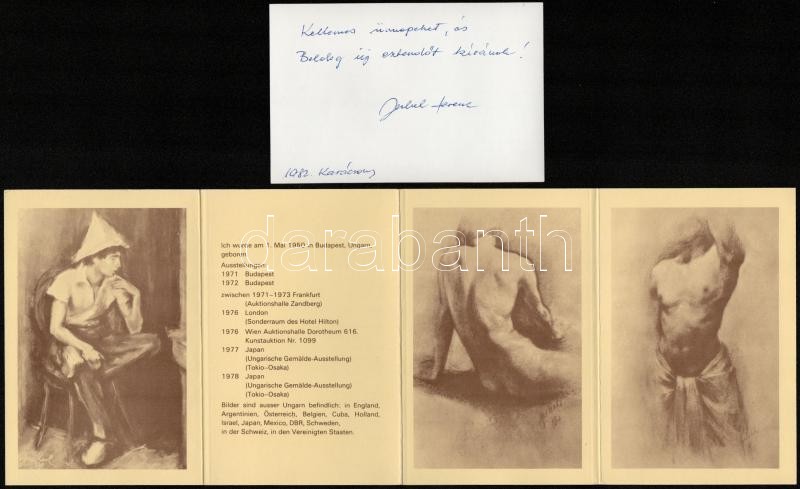 Kellemes ünnepeket, és
Boldog új esztendőt kívánok!
Ferenc
1982. Karácsony
darabanth
Ich wurde am 1. Mai 1950 in Budapest, Ungarn,
geboren.
Ausstellungen:
1971 Budapest
1972 Budapest
zwischen 1971–1973 Frankfurt
(Auktionshalle Zandberg)
1976 London
(Sonderraum des Hotel Hilton)
1976 Wien Auktionshalle Dorotheum 616.
Kunstauktion Nr. 1099
1977 Japan
(Ungarische Gemälde-Ausstellung)
(Tokio–Osaka)
1978 Japan
(Ungarische Gemälde-Ausstellung)
(Tokio–Osaka)
Bilder sind ausser Ungarn befindlich: in England,
Argentinien, Österreich, Belgien, Cuba, Holland,
Israel, Japan, Mexico, DBR, Schweden,
in der Schweiz, in den Vereinigten Staaten.